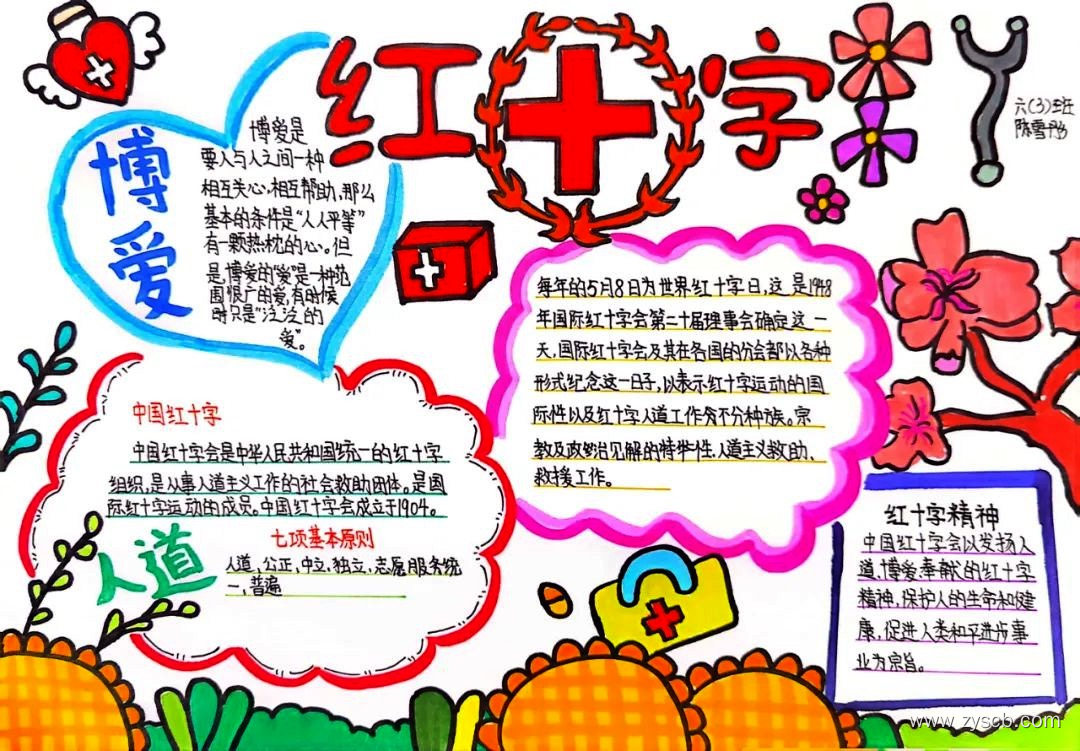 红十字
六(3)班
陈雪彤
博爱
博爱是
要人与人之间一种
相互关心,相互帮助,那么
基本的条件是“人人平等”
有一颗热枕的心。但
是,博爱的“爱”是一种范
围很广的爱,有时候
时只是“泛泛的
爱”。
每年的5月8日为世界红十字日,这是1948
年国际红十字会第二十届理事会确定这一
天,国际红十字会及其在各国的分会都以各种
形式纪念这一日子,以表示红十字运动的国
际性以及红十字人道工作旁不分种族。宗
教及政治见解的特性,人道主义救助、
救援工作。
中国红十字
中国红十字会是中华人民共和国统一的红十字
组织,是从事人道主义工作的社会救助团体。是国
际红十字运动的成员。中国红十字会成立于1904。
七项基本原则
人道
人道、公正、中立、独立、志愿服务统
一、普遍
红十字精神
中国红十字会以发扬人
道、博爱、奉献的红十字
精神,保护人的生命和健
康,促进人类和平进步事
业为宗旨。
www.zyscb.com